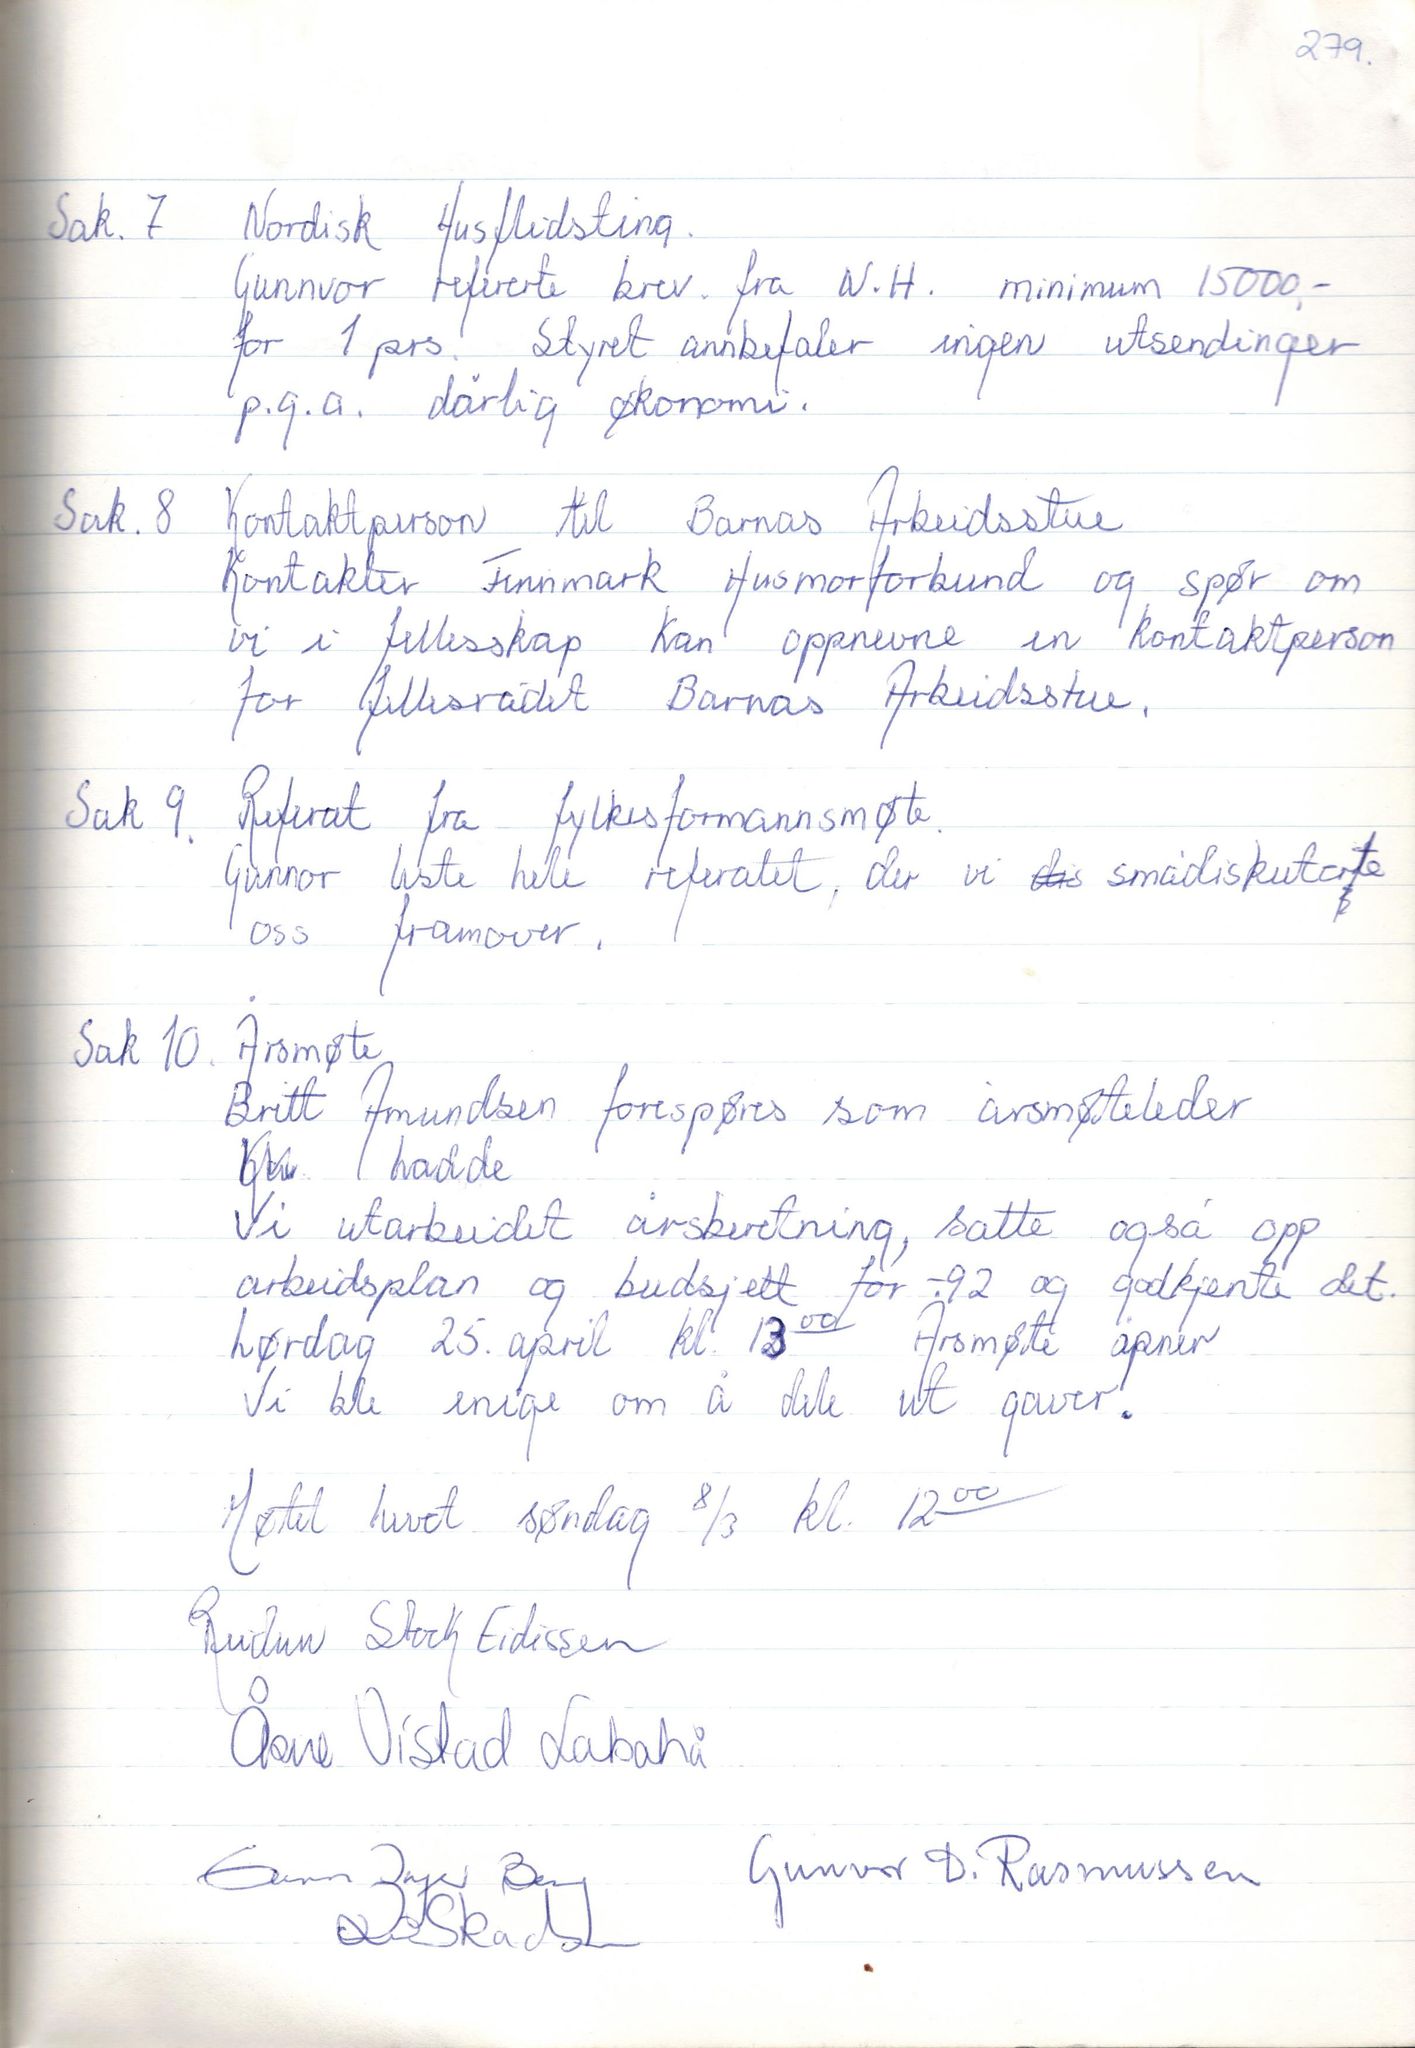 279.
Sak. 7 Nordisk Husflidsting.
Gunnvor refererte brev. fra N.H. minimum 15000,-
for 1 prs. Styret annbefaler ingen utsendinger
p.g.a. dårlig økonomi.
Sak. 8 Kontaktperson til Barnas Arbeidsstue
Kontakter Finnmark Husmorforbund og spør om
vi i fellesskap kan oppnevne en kontaktperson
for fellesrådet Barnas Arbeidsstue.
Sak 9. Referat fra fylkesformannsmøte.
Gunnor leste hele referatet, der vi smådiskuterte
oss framover.
Sak 10. Årsmøte
Britt Amundsen forespøres som årsmøteleder
hadde
Vi utarbeidet årsberetning, satte også opp
arbeidsplan og budsjett for -92 og godkjente det.
Lørdag 25. april kl. 13 00 Årsmøte åpner
Vi ble enige om å dele ut gaver.
Møtet hevet søndag 8/3 kl. 12 00
Reidun Stock Eidissen
Åsne Vistad Labahå
Berg Gunvor D. Rasmussen